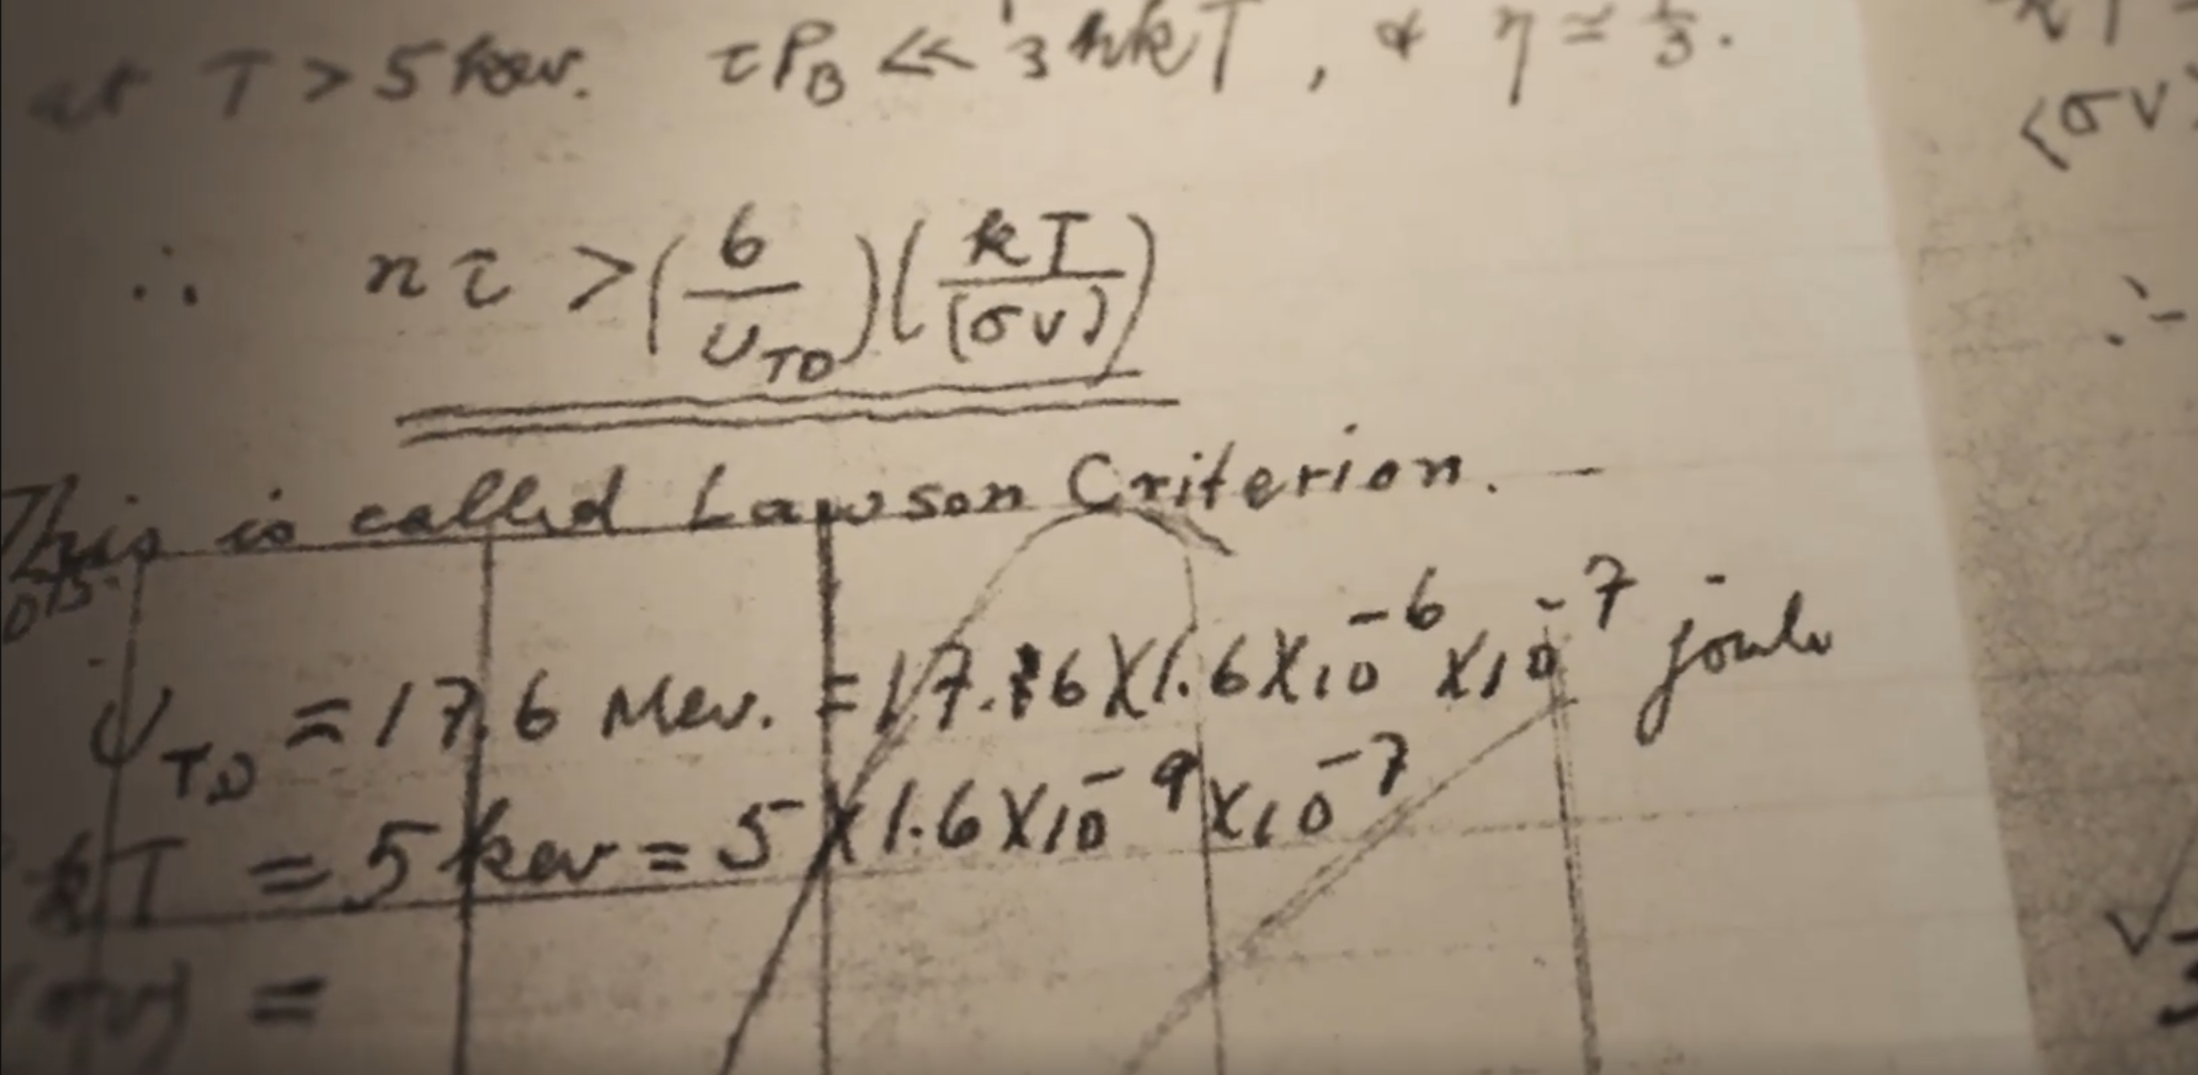 at T > 5 kev. τP_B << 3 nkT, & η ≃ 1/3.
∴ nτ > (6/U_TD)(kT/(σv))
This is called Lawson Criterion. -
U_TD = 17.6 Mev. = 17.76 X 1.6 X 10^-6 X 10^-7 joule
kT = 5 kev = 5 X 1.6 X 10^-9 X 10^-7
(σv) =
kT
<σv>
∴